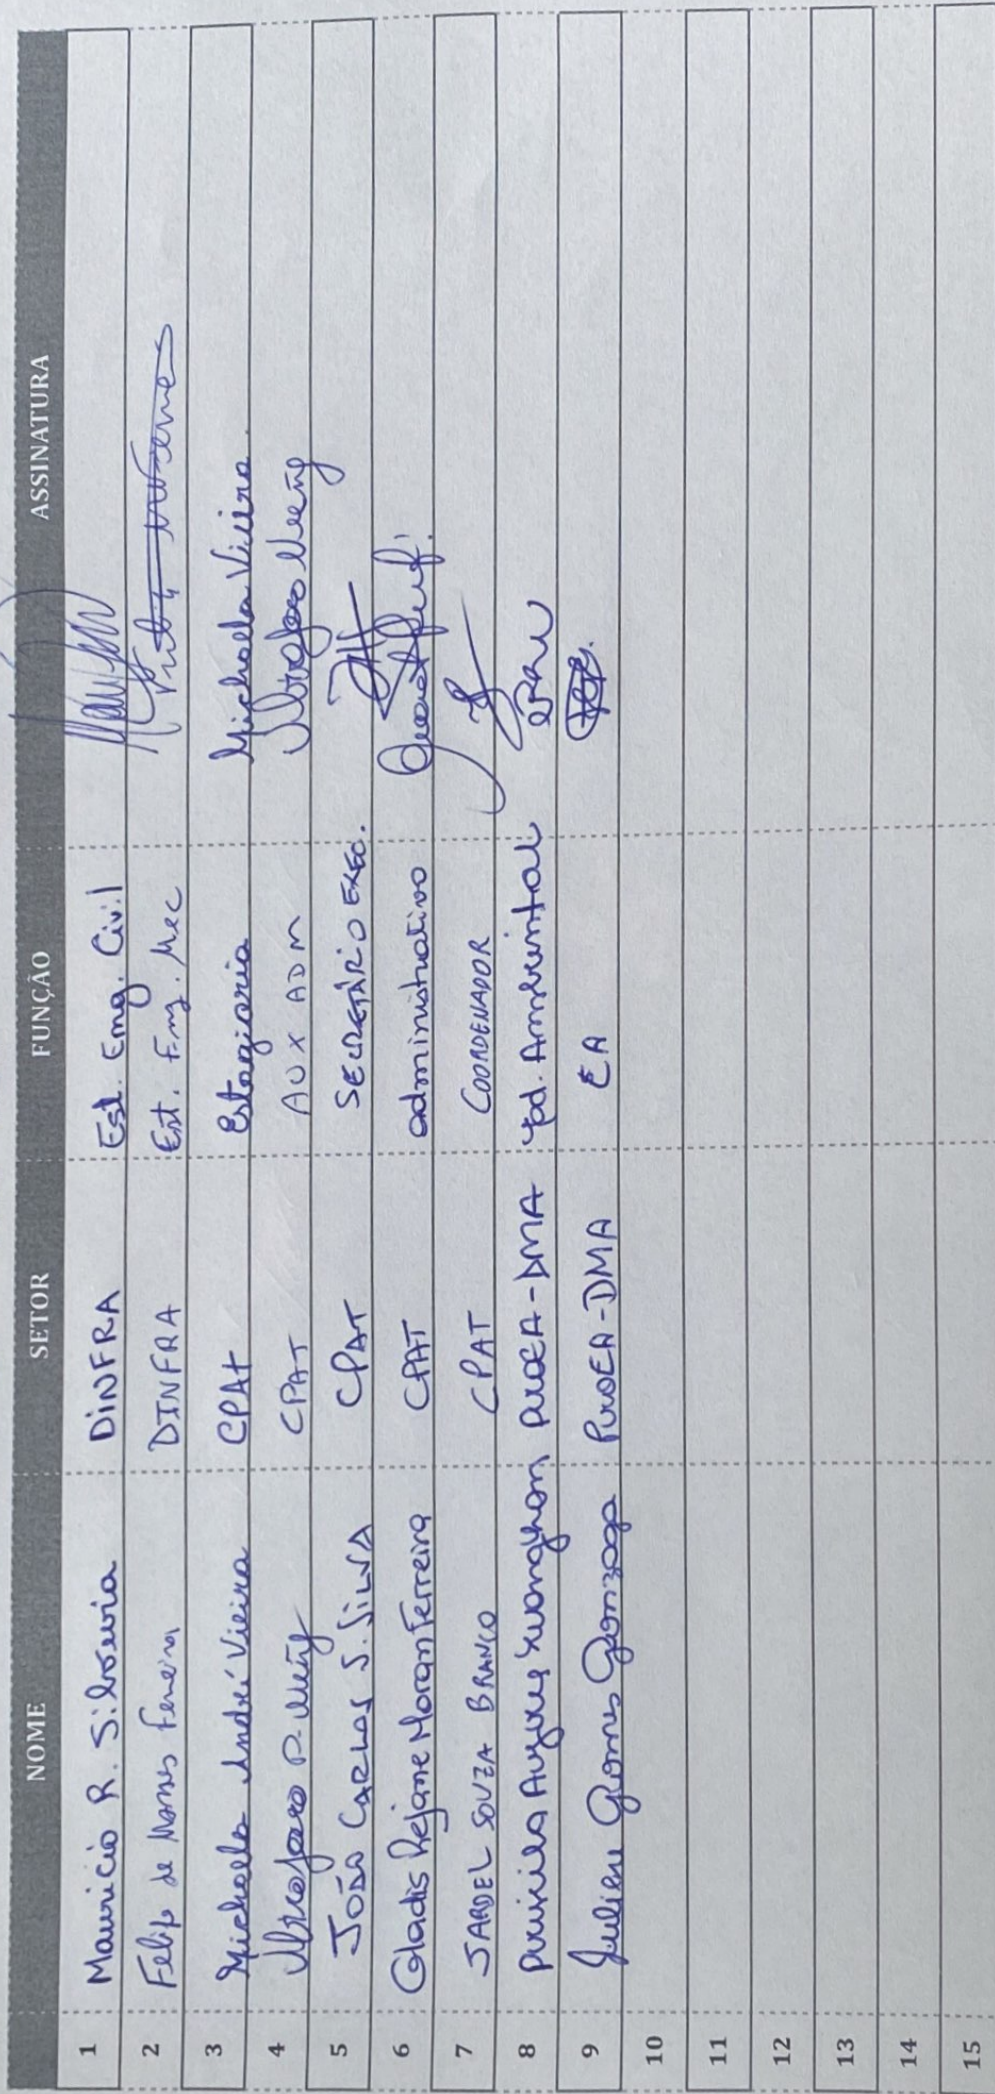 NOME SETOR FUNÇÃO ASSINATURA
1 Mauricio R. Silveira DINFRA Est. Eng. Civil
2 Felipe de Moraes Ferreira DINFRA Est. Eng. Mec
3 Michaela André Vieira CPAT Estagiaria Michaela Vieira.
4 CPAT AUX ADM
5 JOÃO CARLOS S. SILVA CPAT SECRETÁRIO EXEC.
6 Gladis Rejane Moran Ferreira CPAT administrativo
7 JARDEL SOUZA BRANCO CPAT COORDENADOR
8 PROEA-DMA Ambiental
9 Juliene Gomes Gonzaga PROEA-DMA EA
10
11
12
13
14
15